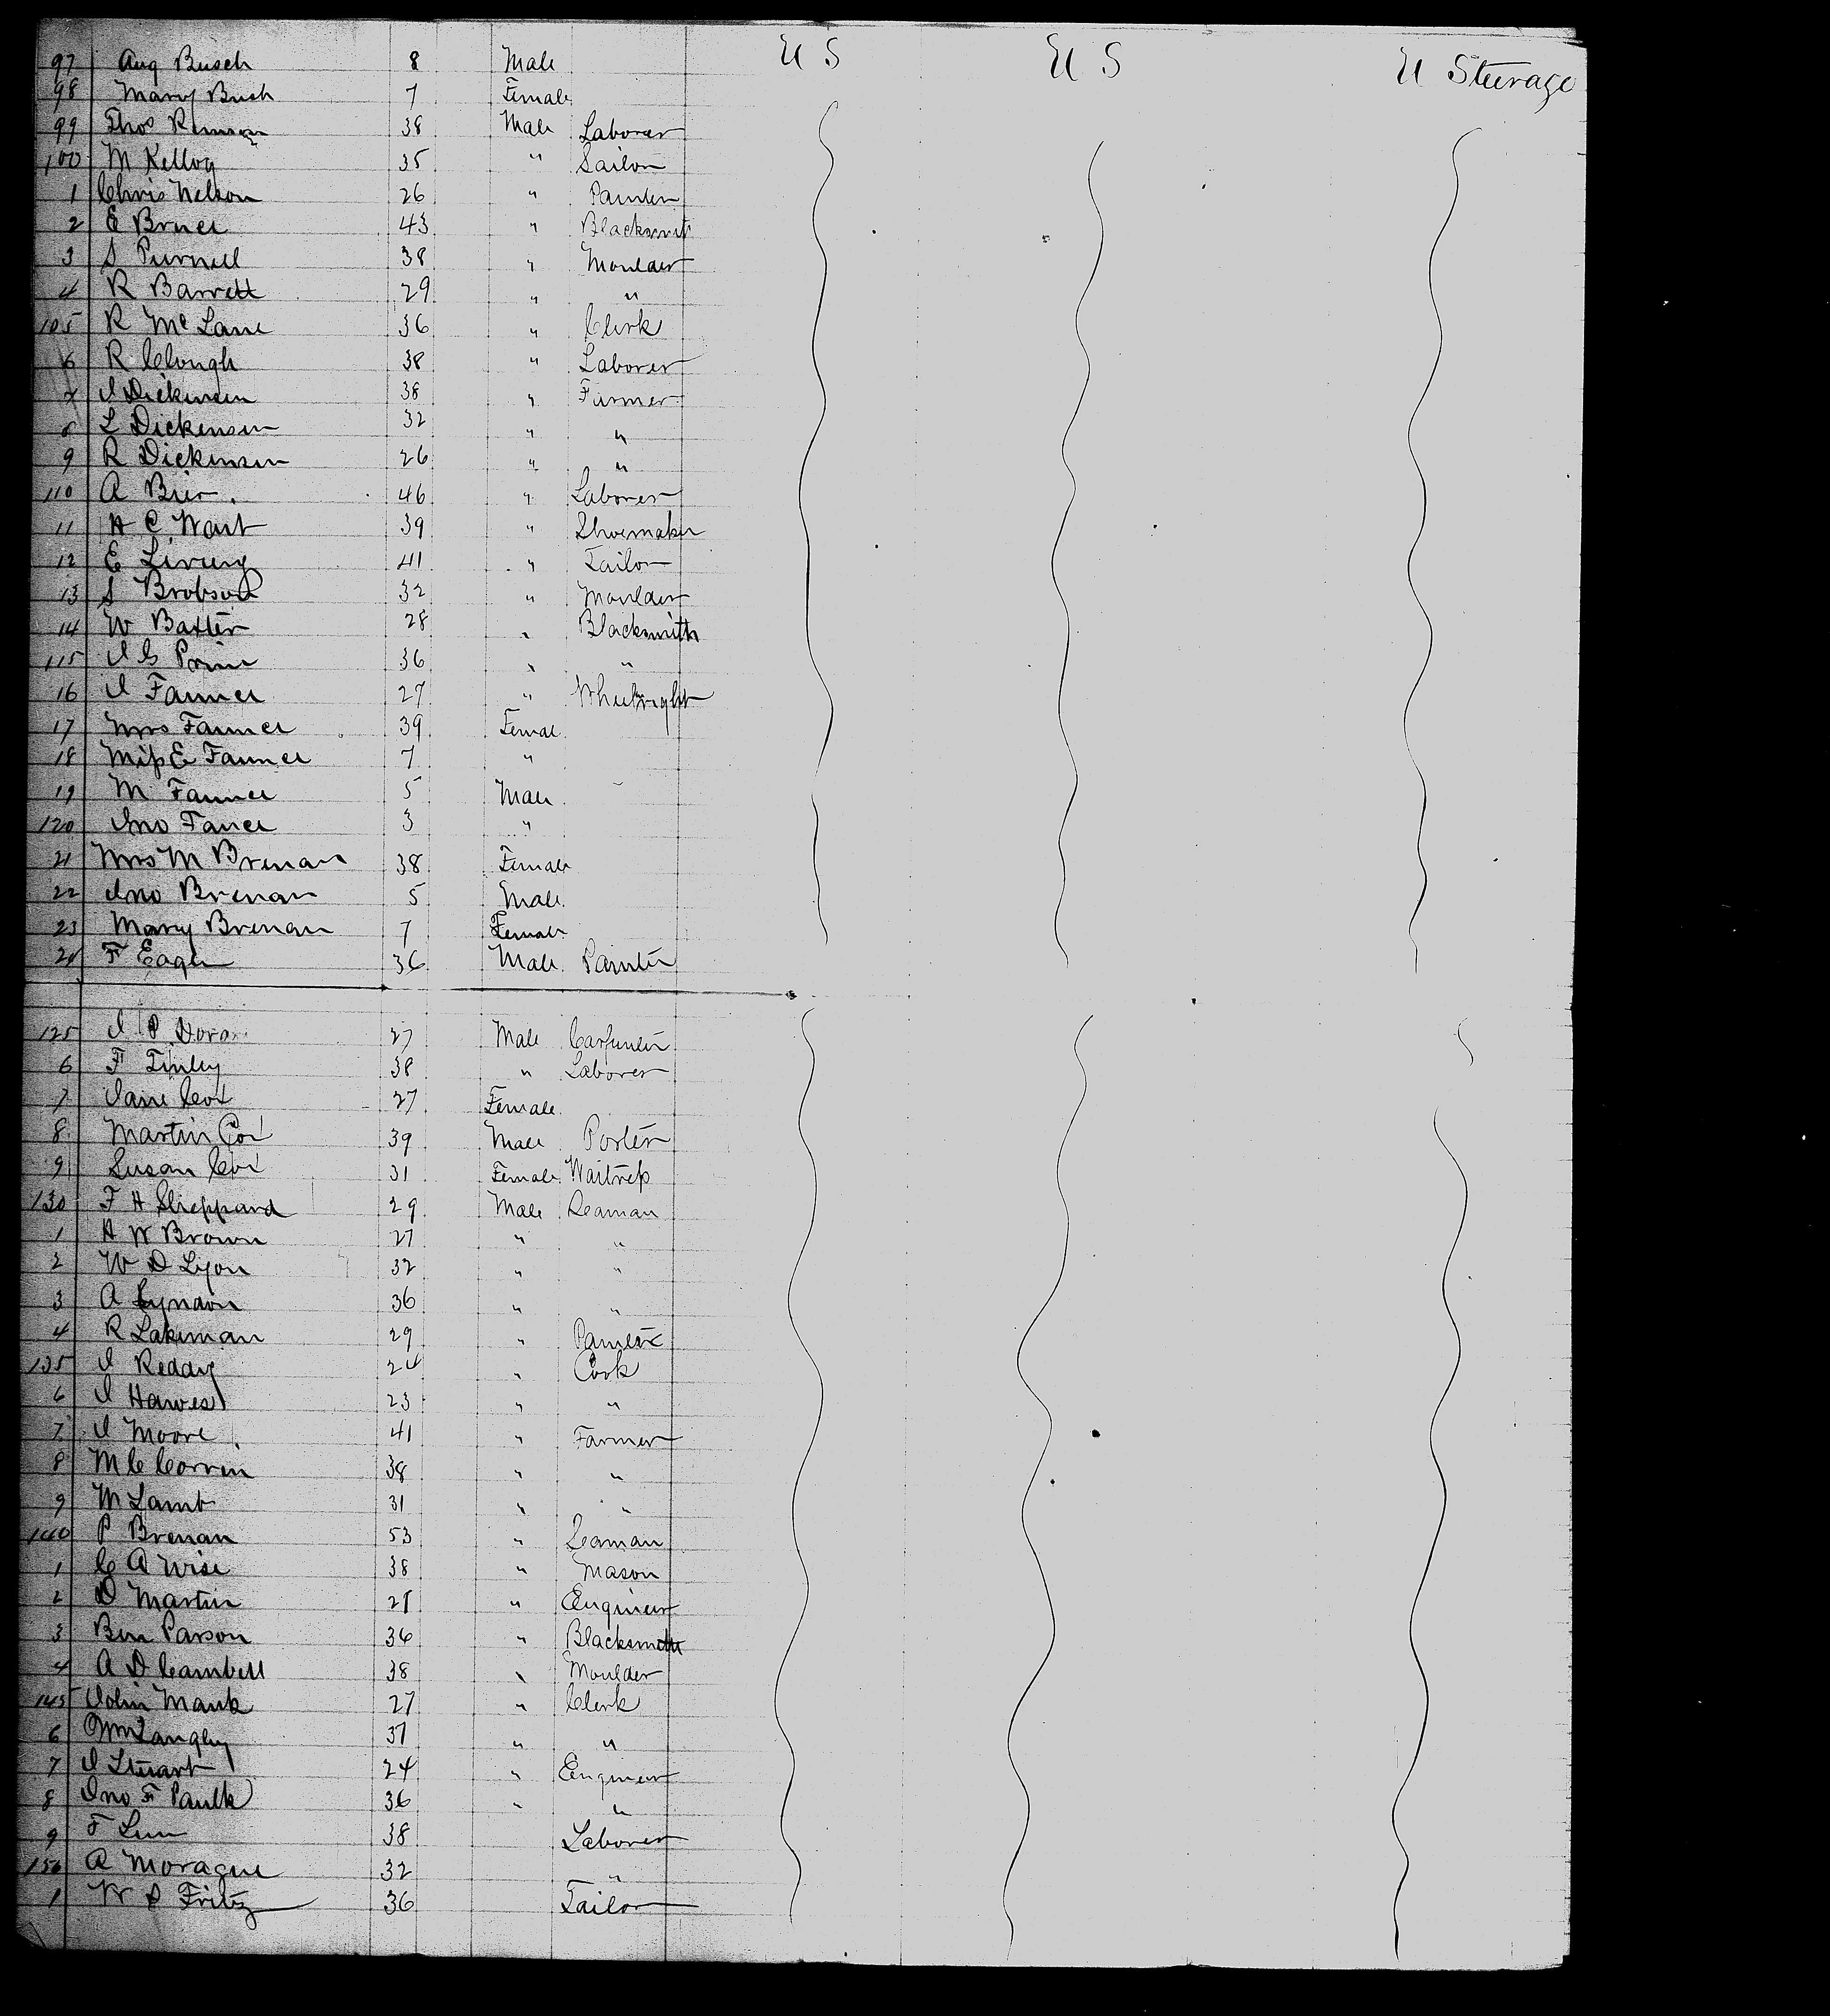 97 Aug Busch 8 Male U S U S U Sturage
98 Mary Bush 7 Female
99 Thos 38 Male Laborer
100 M Kellog 35 " Sailor
1 Chris Nelson 26 " Painter
2 E Bruce 43 " Blacksmit
3 S Purnell 38 " Moulder
4 R Barrett 29 " "
105 R Mc Lane 36 " Clerk
6 R Clough 38 " Laborer
7 J Dickinson 38 " Farmer
8 L Dickenson 32 " "
9 R Dickinson 26 " "
110 A Bier 46 " Laborer
11 H C Wart 39 " Shoemaker
12 E 41 " Tailor
13 S Brobson 32 " Moulder
14 W Baxter 28 " Blacksmith
115 J C 36 " "
16 J Farmer 27 " Wheelwright
17 Mrs Farmer 39 Female
18 Miss E Farmer 7 "
19 M Farmer 5 Male
120 Jno 3 "
21 Mrs M Brenan 38 Female
22 Jno Brenan 5 Male
23 Mary Brenan 7 Female
24 F Eagle 36 Male Painter
125 J P Doran 27 Male Carpenter
6 F Finley 38 " Laborer
7 Jane Cox 27 Female
8 Martin Cox 39 Male Porter
9 Susan Cox 31 Female Waitress
130 F H Sheppard 29 Male Seaman
1 H W Brown 27 " "
2 W D Lyon 32 " "
3 A 36 " "
4 R Lakeman 29 " Painter
135 J Reddy 24 " Cook
6 J Hawes 23 " "
7 J Moore 41 " Farmer
8 M C 38 " "
9 M Lamb 31 " "
140 P Brenan 53 " Seaman
1 C A Wise 38 " Mason
2 D Martin 28 " Engineer
3 Ben Parson 36 " Blacksmith
4 A D Cambell 38 " Moulder
145 John Mank 27 " Clerk
6 Wm Langley 37 " "
7 J Stuart 24 " Engineer
8 Jno F Paulk 36 " "
9 F 38 Laborer
150 A Moragne 32 "
1 W P Fritz 36 Tailor